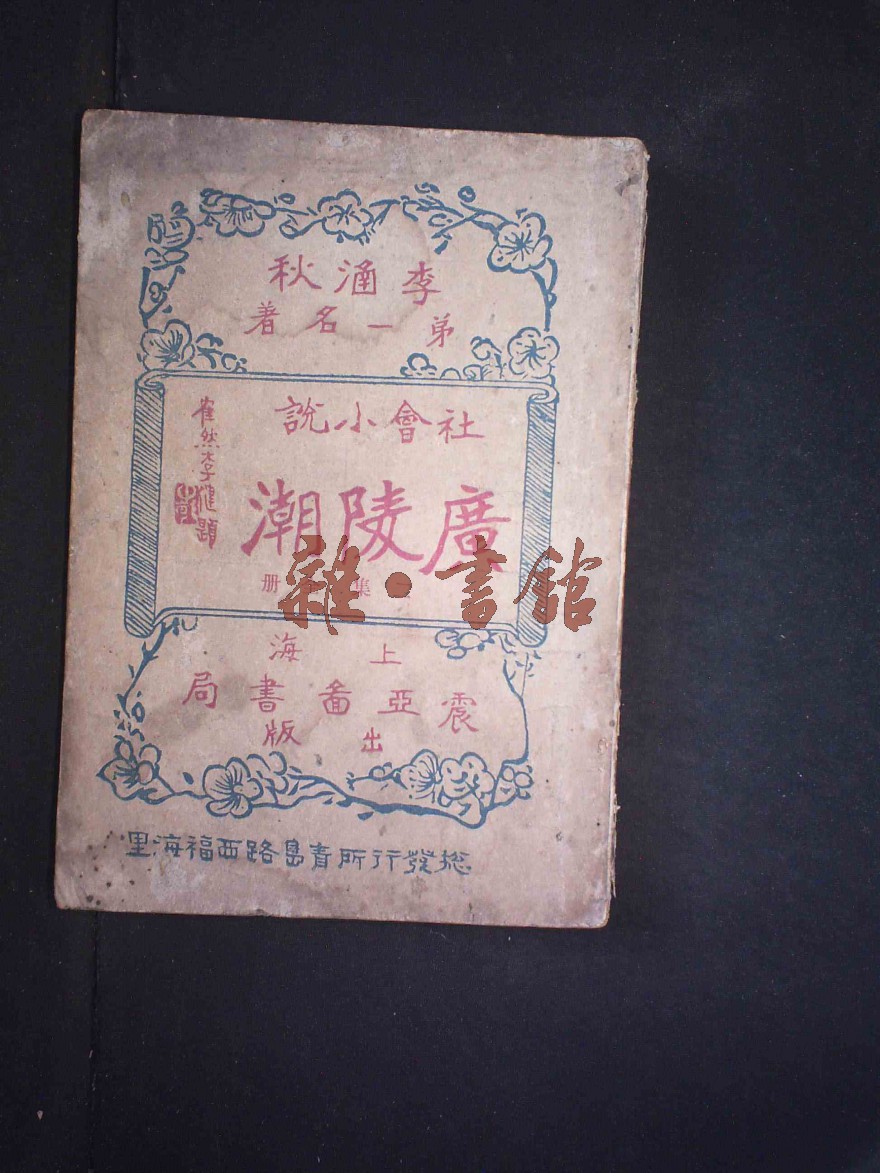 李涵秋
弟一名著
社會小說
廣陵潮
集 册
題
上海
震亞圖書局
出版
總發行所青島路西福海里
雜·書館